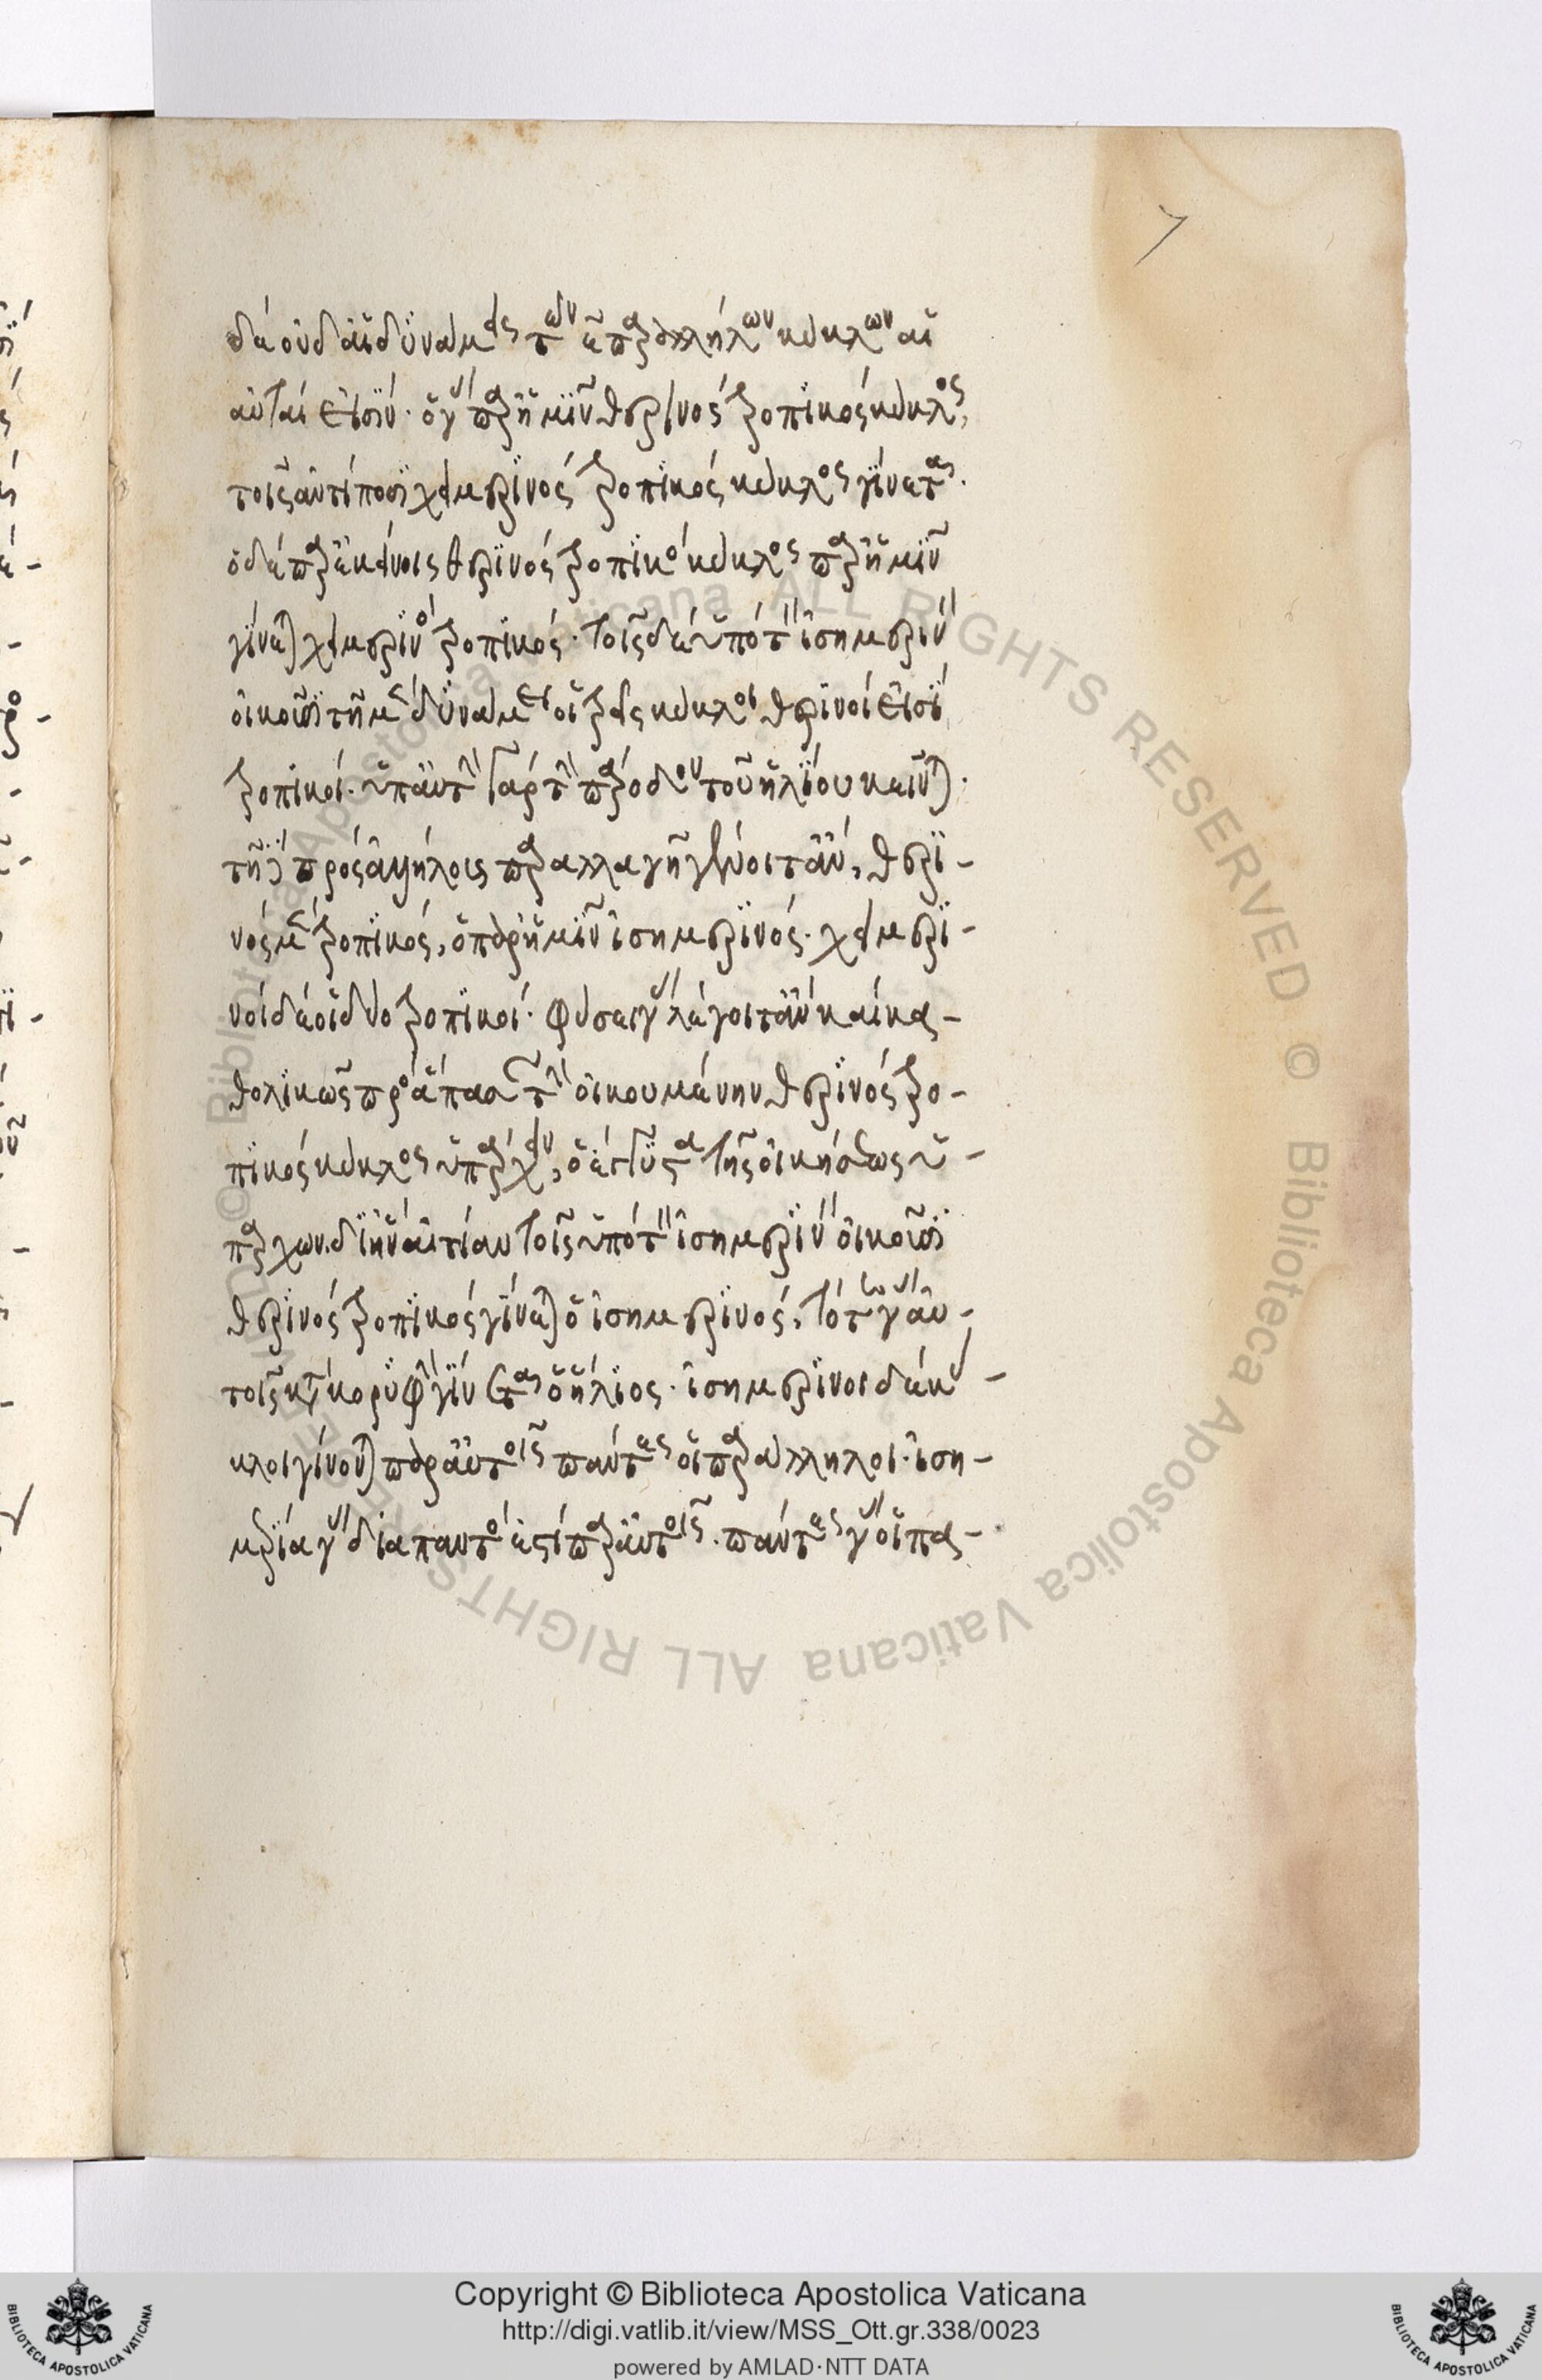 7
δὲ οὐδ' αἱ δυνάμεις τῶν ε̄ παραλλήλων κύκλων αἱ
αὐταί εἰσιν. ὁ γὰρ παρ' ἡμῖν θερινὸς τροπικὸς κύκλος,
τοῖς ἀντίποσι χειμερινὸς τροπικὸς κύκλος γίνεται.
ὁ δὲ παρ' ἐκείνοις θερινὸς τροπικὸς κύκλος παρ' ἡμῖν
γίνεται χειμερινὸς τροπικός. τοῖς δὲ ὑπὸ τὸν ἰσημερινὸν
οἰκοῦσι τῇ μὲν δυνάμει οἱ τρεῖς κύκλοι θερινοί εἰσι
τροπικοί. ὑπ' αὐτὴν γὰρ τὴν πάροδον τοῦ ἡλίου κεῖνται.
τῇ δὲ πρὸς ἀλλήλους παραλλαγῇ γένοιτ' ἂν, θερι-
νὸς μὲν τροπικός, ὁ παρ' ἡμῖν ἰσημερινός. χειμερι-
νοὶ δὲ οἱ δύο τροπικοί. φύσει γὰρ λέγοιτ' ἂν καὶ κα-
θολικῶς πρὸς ἅπασαν τὴν οἰκουμένην θερινὸς τρο-
πικὸς κύκλος ὑπάρχειν, ὁ ἔγγιστα τῆς οἰκήσεως ὑ-
πάρχων. δι' ἣν αἰτίαν τοῖς ὑπὸ τὸν ἰσημερινὸν οἰκοῦσι
θερινὸς τροπικὸς γίνεται ὁ ἰσημερινός. τότε γὰρ αὐ-
τοῖς κατὰ κορυφὴν γίνεται ὁ ἥλιος. ἰσημερινοὶ δὲ κύ-
κλοι γίνονται παρ' αὐτοῖς πάντες οἱ παράλληλοι. ἰση-
μερία γὰρ διαπαντὸς ἐστὶ παρ' αὐτοῖς. πάντες γὰρ οἱ πα-
Copyright © Biblioteca Apostolica Vaticana
http://digi.vatlib.it/view/MSS_Ott.gr.338/0023
powered by AMLAD·NTT DATA
BIBLIOTECA APOSTOLICA VATICANA
BIBLIOTECA APOSTOLICA VATICANA
© Biblioteca Apostolica Vaticana ALL RIGHTS RESERVED © Biblioteca Apostolica Vaticana ALL RIGHTS RESERVED